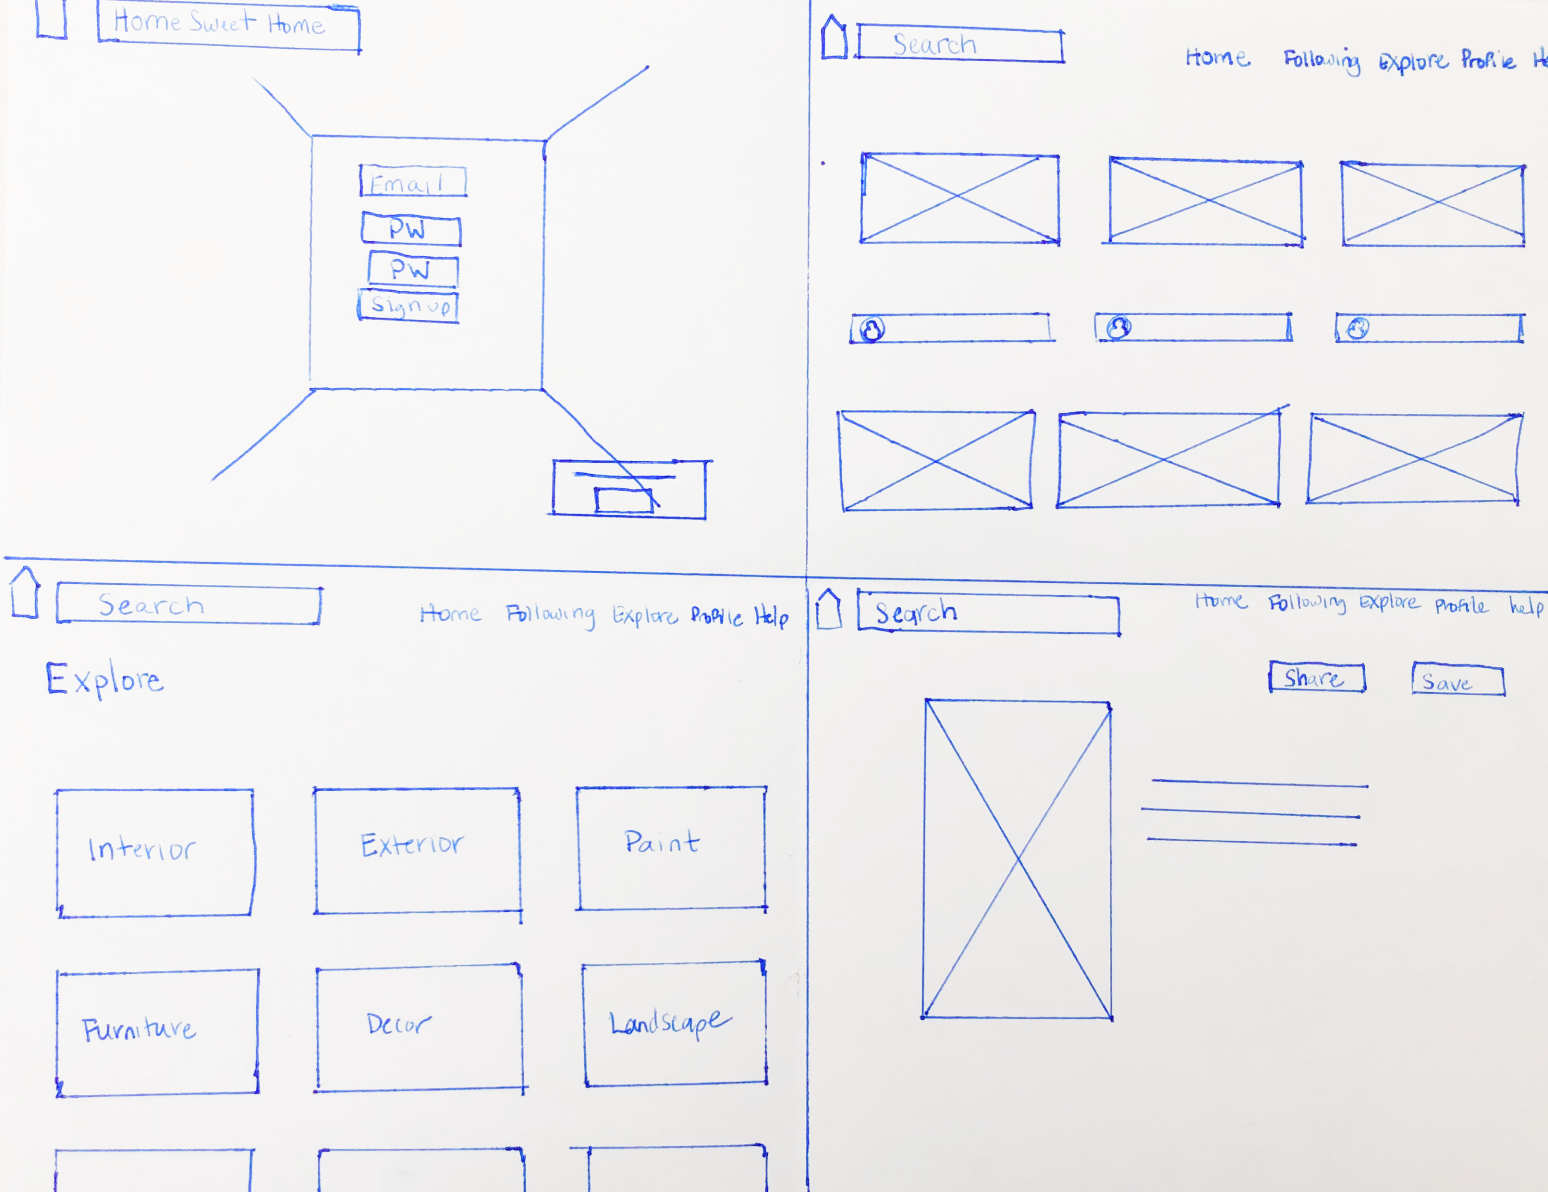 Home Sweet Home
Email
PW
PW
Sign up
Search
Home Following Explore Profile He
Search
Home Following Explore Profile Help
Explore
Interior Exterior Paint
Furniture Decor Landscape
Search
Home Following Explore Profile help
Share Save